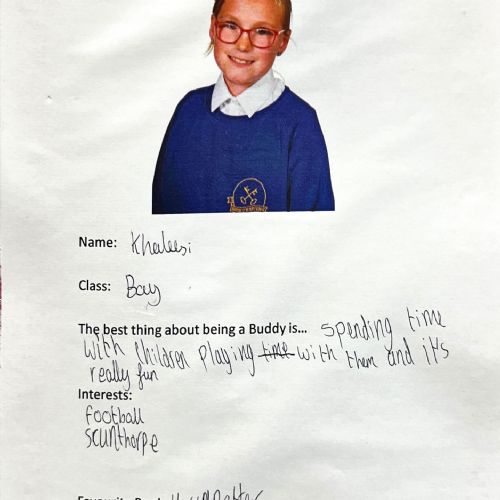 Name: Khaleesi
Class: Bay
The best thing about being a Buddy is... spending time
with children playing time with them and it's
really fun
Interests:
football
scunthorpe